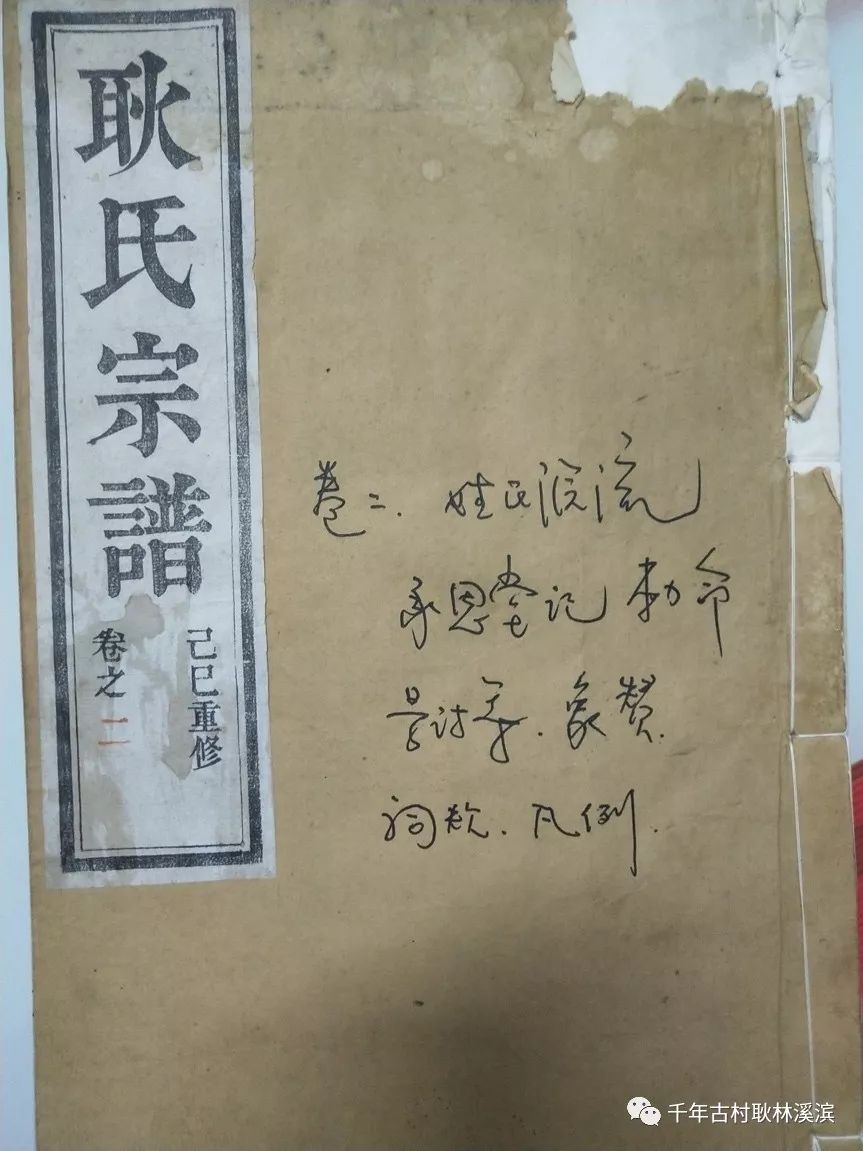 耿氏宗譜
己巳重修
卷之二
卷二. 姓氏源流
承恩堂记 勅命
象赞.
祠款. 凡例.
千年古村耿林溪滨